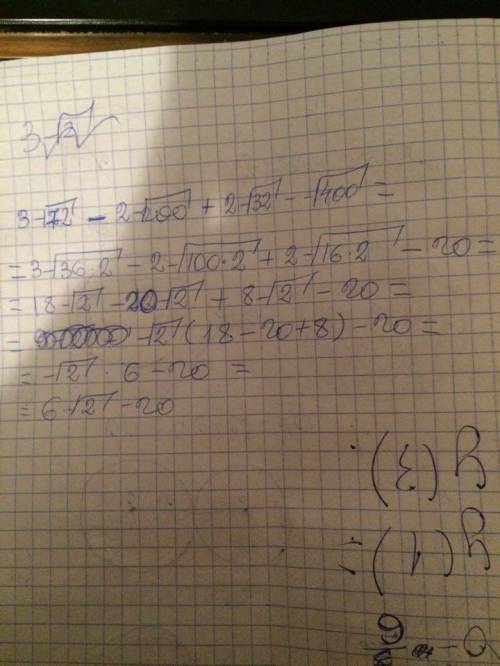 3√72 - 2√200 + 2√32 - √400 =
= 3√36·2 - 2√100·2 + 2√16·2 - 20 =
= 18√2 - 20√2 + 8√2 - 20 =
= √2 (18 - 20 + 8) - 20 =
= √2 · 6 - 20 =
= 6√2 - 20
y(3)
y(1)